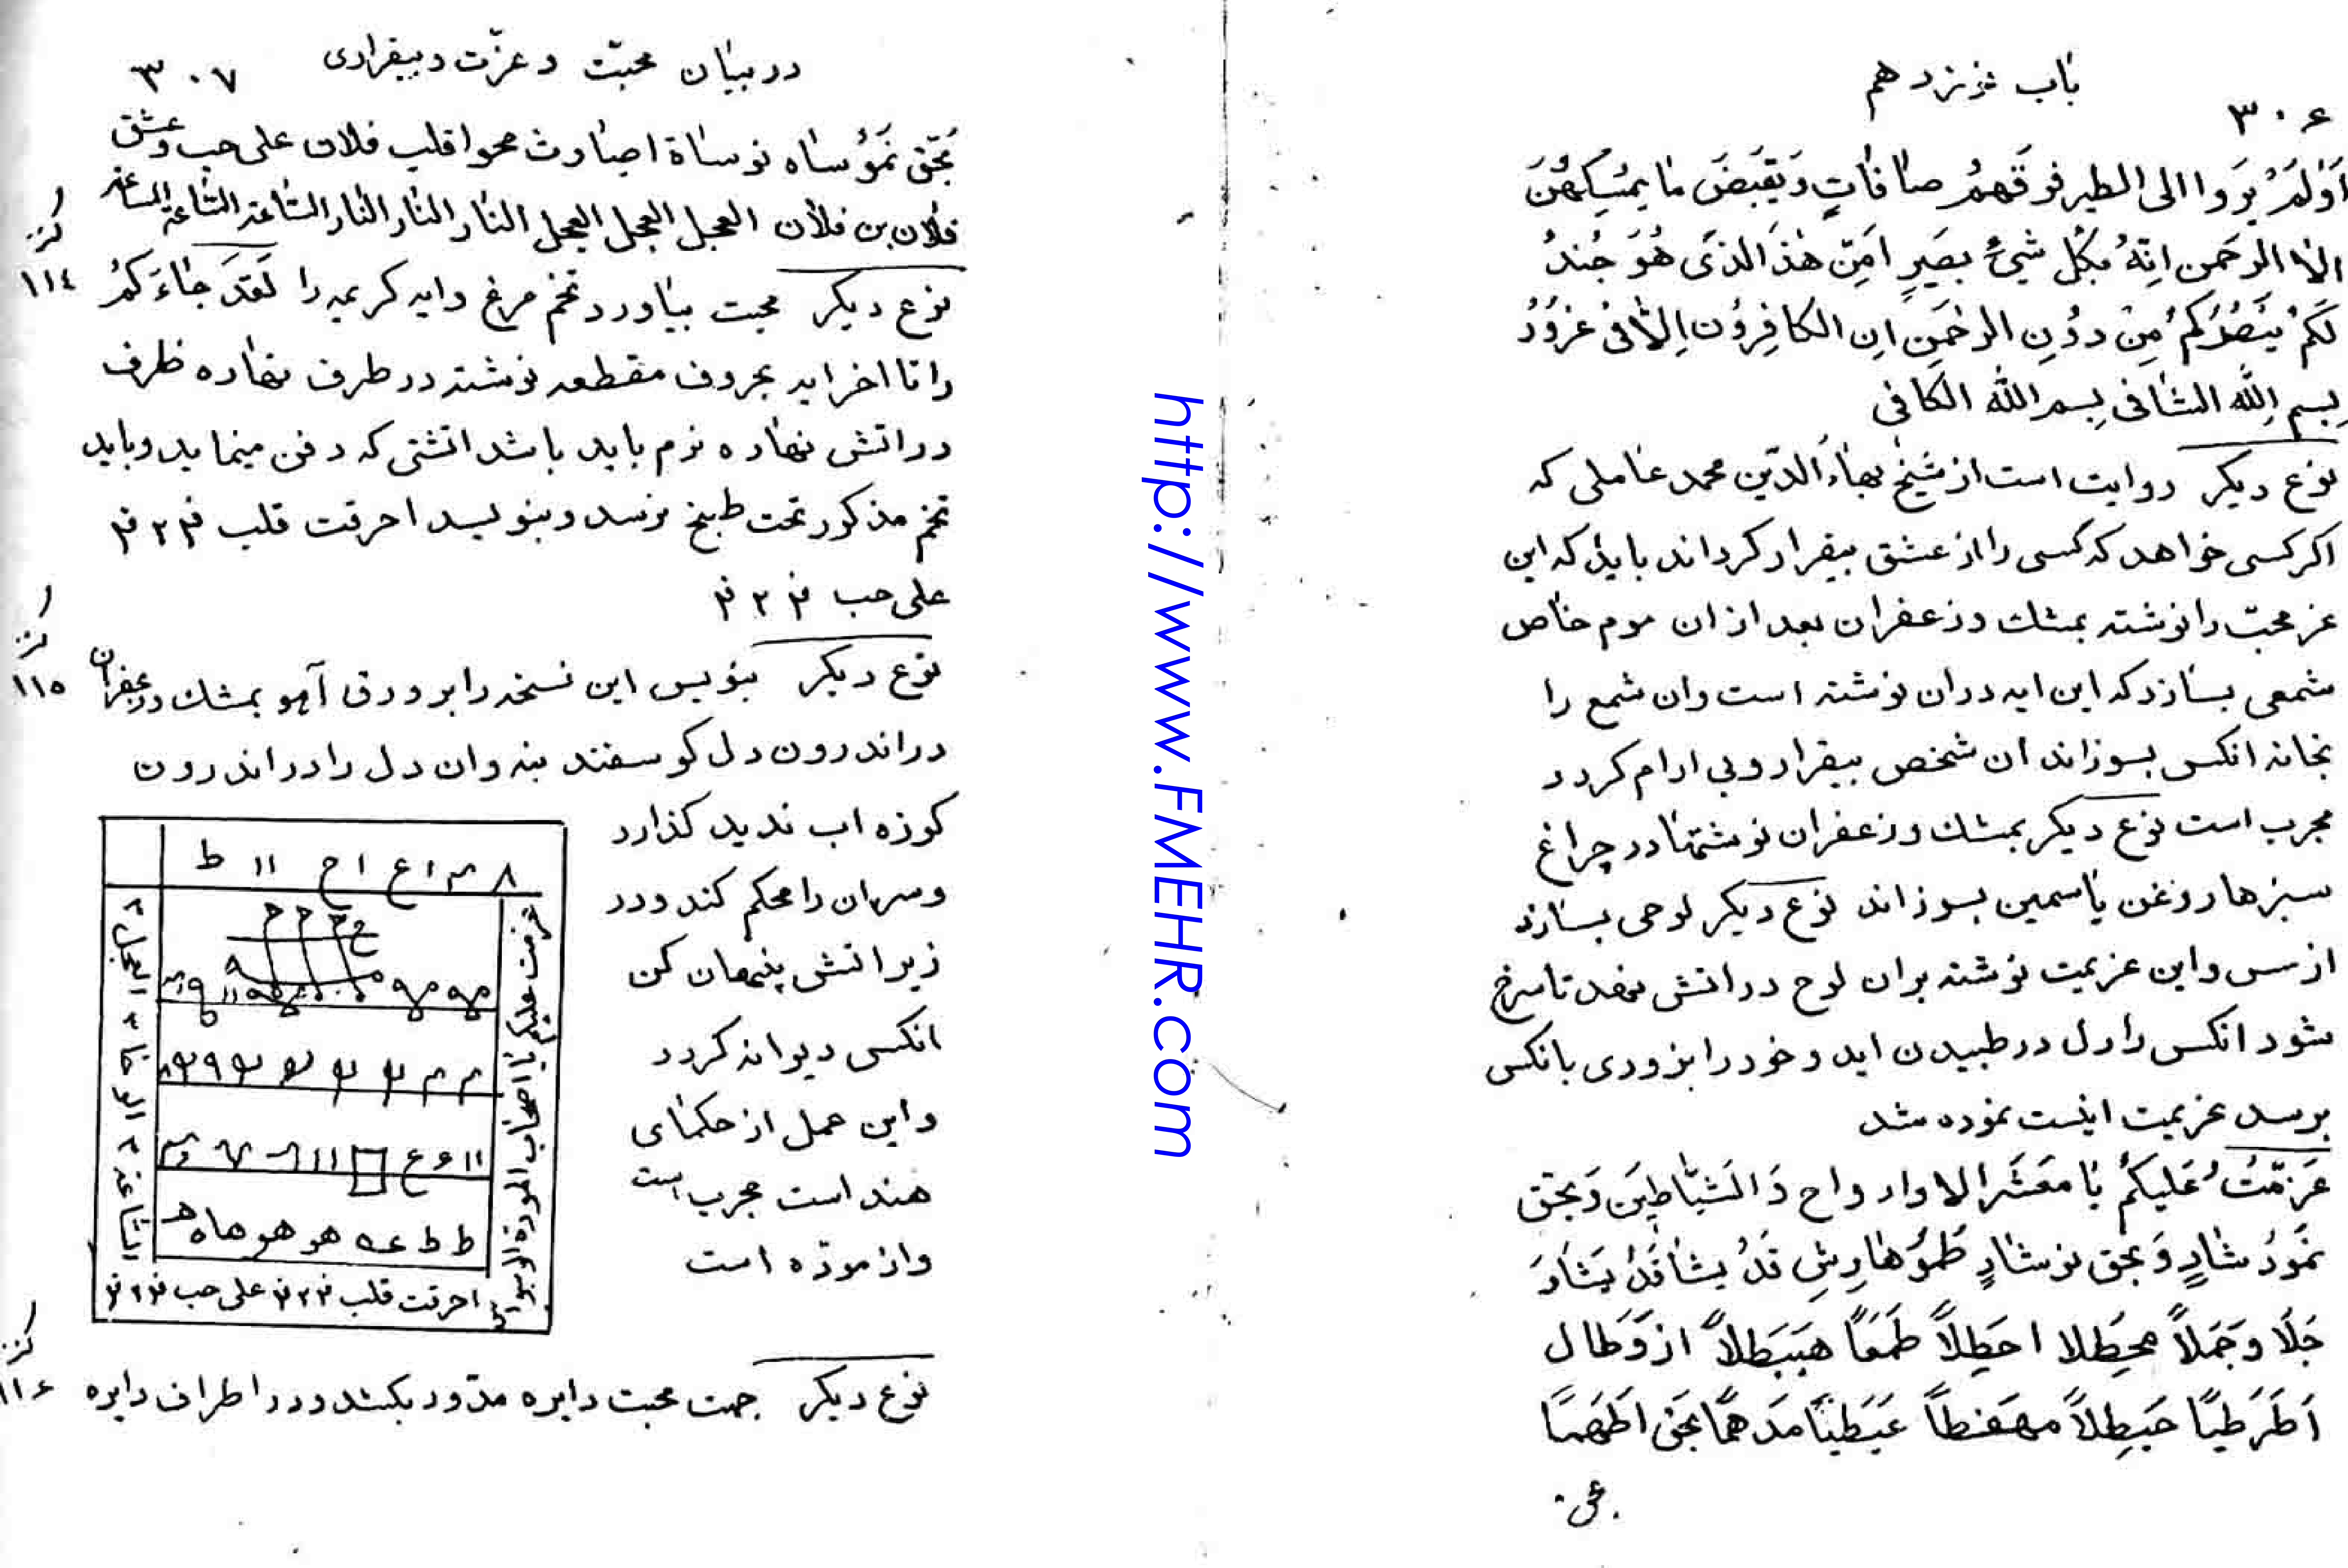 باب شونزدهم
۳۰۶
اَوَلَمْ يَرَوا الى الطير فوقهمُ صافاتٍ وَيَقبِضنَ ما يمسِكهُنَ
الا الرحمن انّهُ بكُلِ شَیٍٔ بصَيرٍ امّن هذَالذى هُوَ جُندٌ
لكمُ ينَصُرُكمُ مِن دوُنِ الرحمَن اِن الكافِروُن اِلاّ فى غروُر
بِسمِ اللّه الشافى بِسم اللّه الكافى
نوع ديكر روايت است از شيخ بهاءُالدّين محمد عاملى كه
اكر كسى خواهد كه كسى را از عشق بيقرار كرداند بايد كه اين
عز محبّت را نوشته بمشك و زعفران بعد از ان موم خاص
شمعى بسازد كه اين ايه در ان نوشته است وان شمع را
بخانه انكس بسوزاند ان شخص بيقرار و بى ارام كردد
مجرب است نوع ديكر بمشك و زعفران نوشتها در چراغ
سبز ها روغن ياسمين بسوزاند نوع ديكر لوحى بسازد
از مس و اين عزيمت نوشته بران لوح در اتش نهد تا سرخ
شود انكس را دل در طبيدن ايد و خود را بزودى بانكس
برسد عزيمت اينست نموده شد
عَزمّتُ عَليكمُ يا معَشَر الا وار واح وَالشَياطِين وَبحَق
نمَوُد شادٍ وَ بحق نوشادٍ طموُهارِشِ قدَ يشاقَدَ يَشاوَر
جَلاً وَجَملاً محيِطلا احَطِلاً طَمعَاً هَبَبَطلاً ازوَطال
اَطَرَطيًا حَبَطِلاً مهَفطاً عَيَطيَنًا مدَهمًا بحَق اطَهمَا
در بيان محبّت و عزّت و بيقرارى
۳۰۷
بَحّق نمَوُساه نوساة اصباوث محوا قلب فلان على حب و عشق
فلان بن فلان العجل العجل العجل النار النار النار الساعة الساعة الساعة
نوع ديكر محبت بياورد تخم مرغ و ايه كريمه را لَقدَ جاءَكمُ
را تا اخر ايه بحروف مقطعه نوشته در طرف نهاده ظرف
در اتش نهاده نرم بايد باشد اتشتى كه دفن مينمايد و بايد
تخم مذكور تحت طبخ نرسد و بنويسد احرقت قلب ف ۲ ف
على حب ف ۲ ف
۱۱٤
نوع ديكر بنويس اين نسخه را بر ورق آهو بمشك و زعفران
۱۱۵
در اندرون دل كوسفند بنه وان دل را در اندرون
كوزه اب نديد كذارد
و سر ان را محكم كند و در
زير اتش پنهان كن
انكس ديوانه كردد
و اين عمل از حكماى
هند است مجرب است
و ازموده است
۸ م ا ع ا ح ١١ ط
عزمت عليكم يا اصحاب المودة
العجل ۲ الوحا ۲ الساعة ۲
ط ط عه هو هو هاه هـ
احرقت قلب ف ۲ ف على حب ف ۲ ف
نوع ديكر جهت محبت دايره مدّور بكشد و در اطراف دايره
۱۱۶
http://www.FMEHR.com